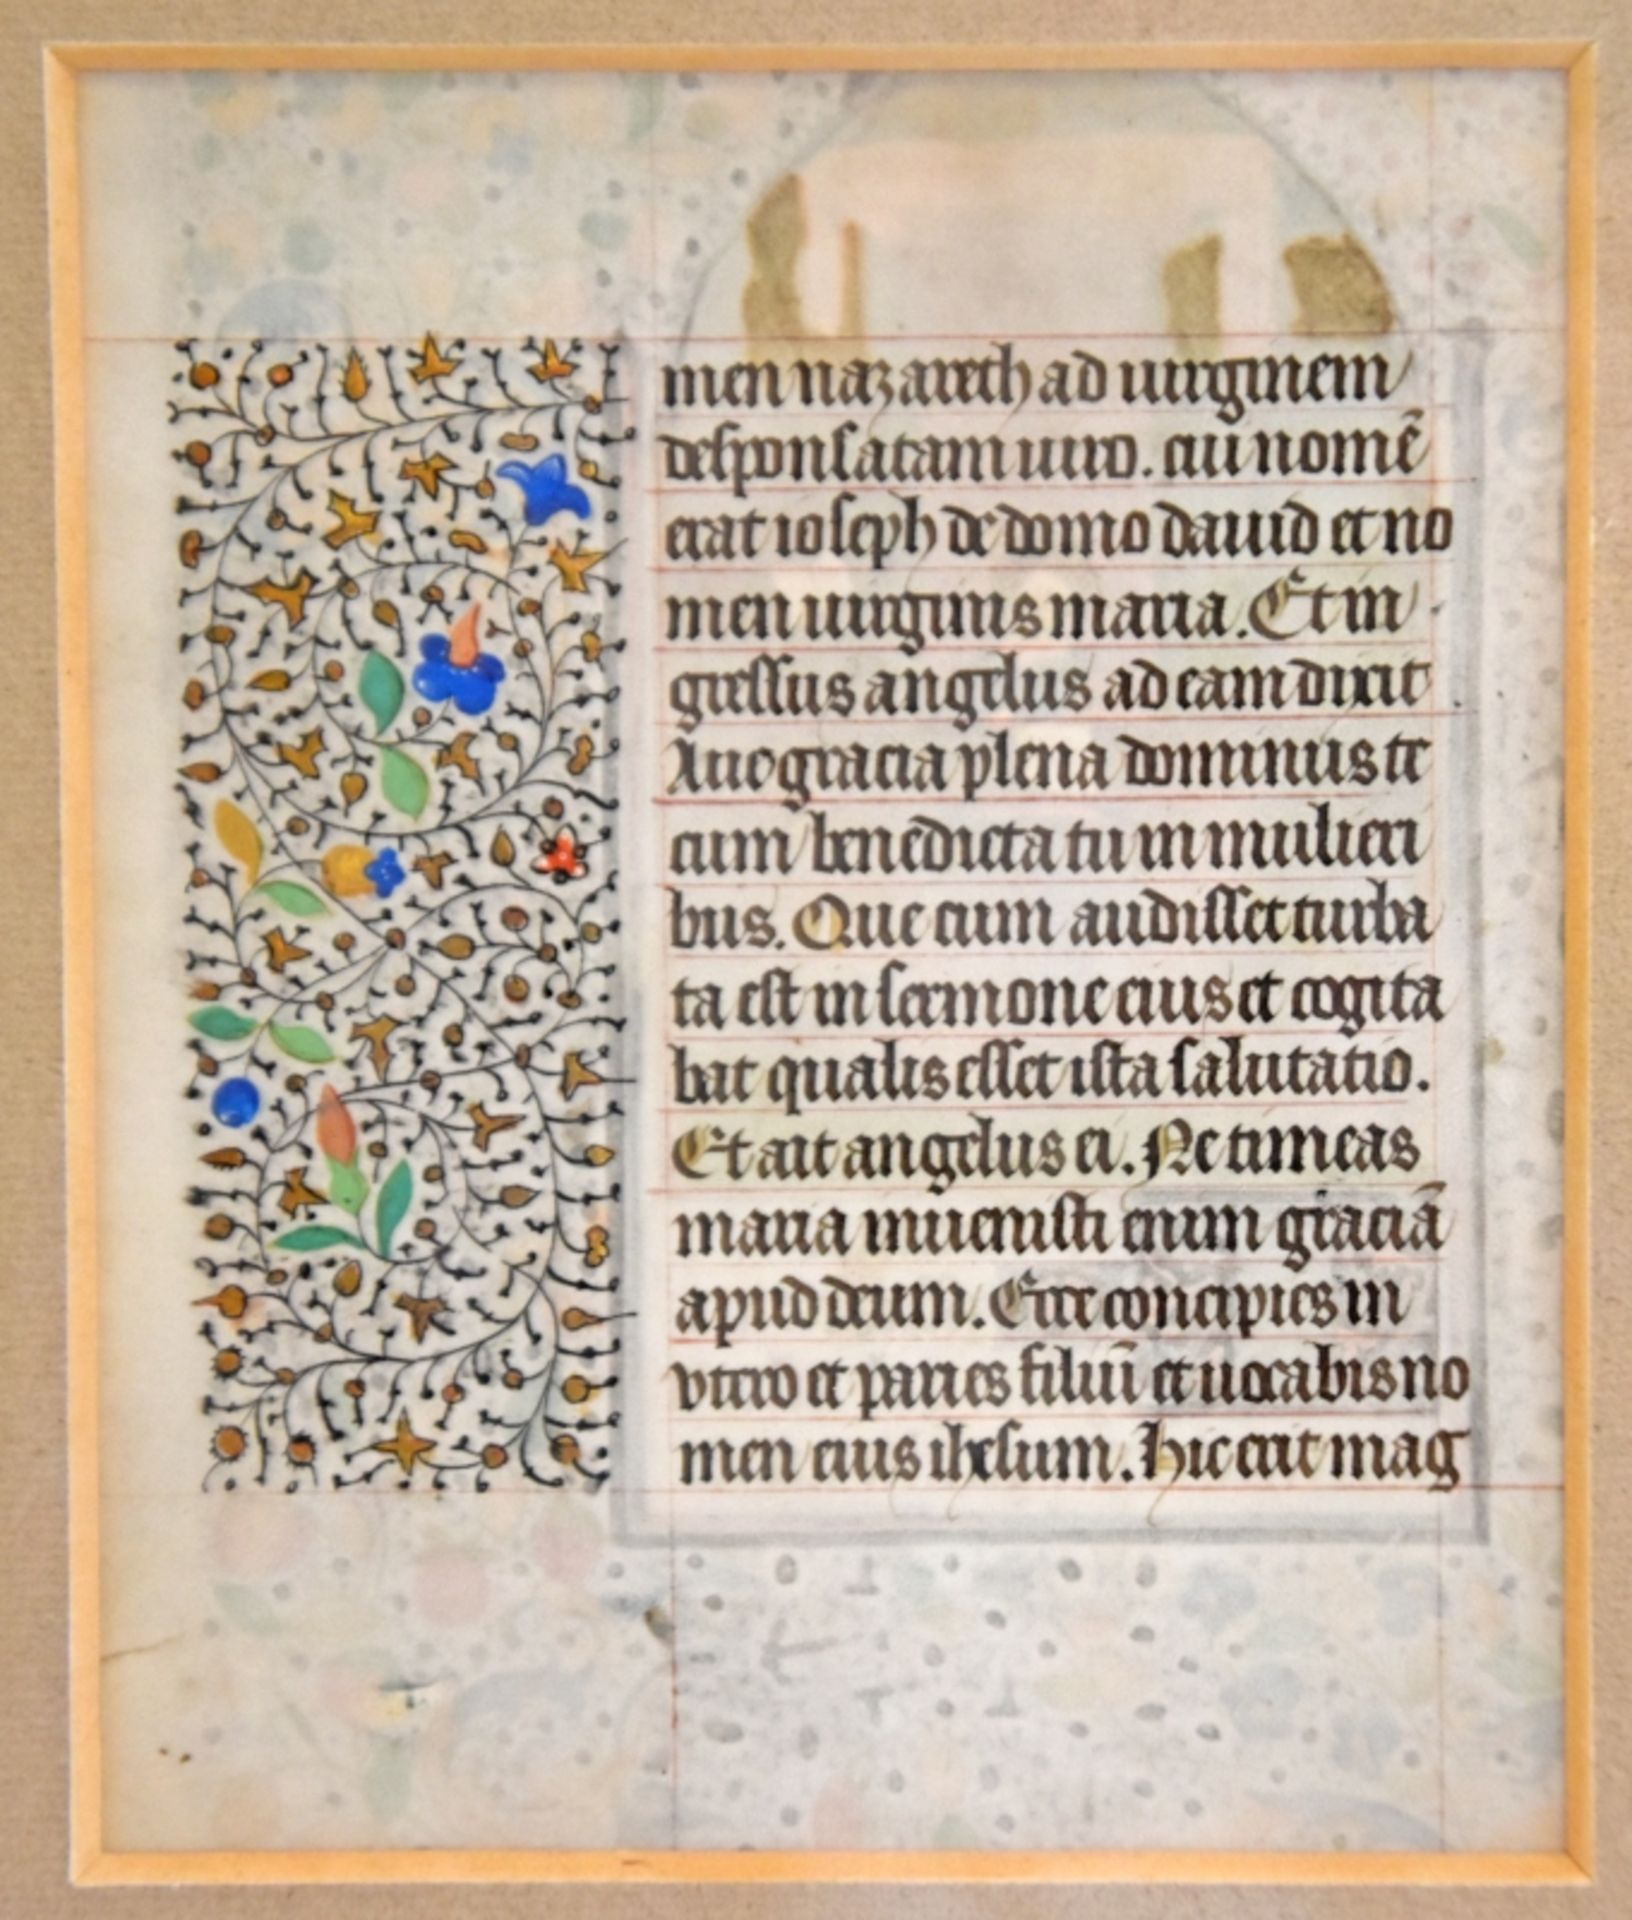 men nazareth ad uirginem
desponsatam uiro. cui nomē
erat ioseph de domo dauid et no
men uirginis maria. Et in
gressus angelus ad eam dixit
Aue gracia plena dominus te
cum benedicta tu in mulieri
bus. Que cum audisset turba
ta est in sermone eius et cogita
bat qualis esset ista salutatio.
Et ait angelus ei. Ne timeas
maria inuenisti enim graciā
apud deum. Ecce concipies in
vtero et paries filiū et uocabis no
men eius ihesum. Hic erit mag